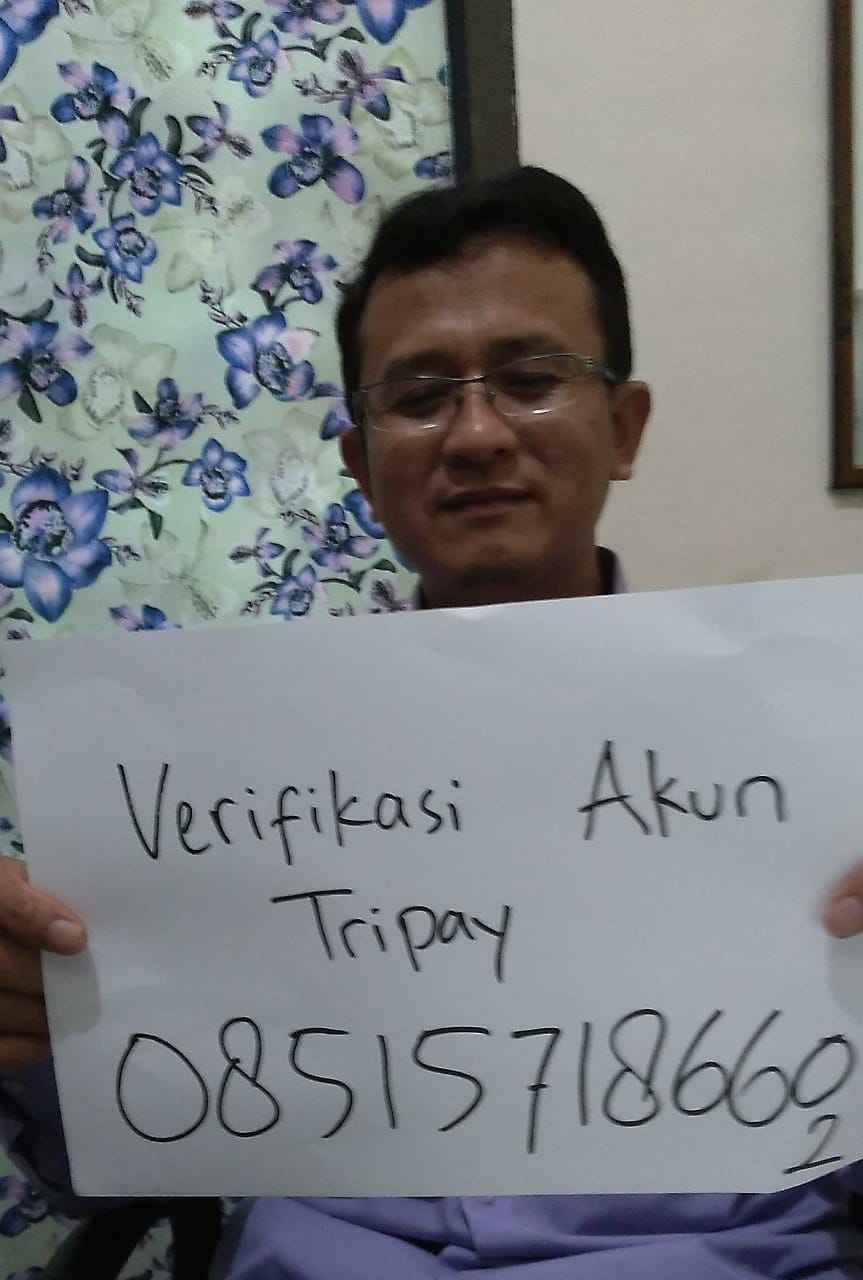 Verifikasi Akun
Tripay
085157186602